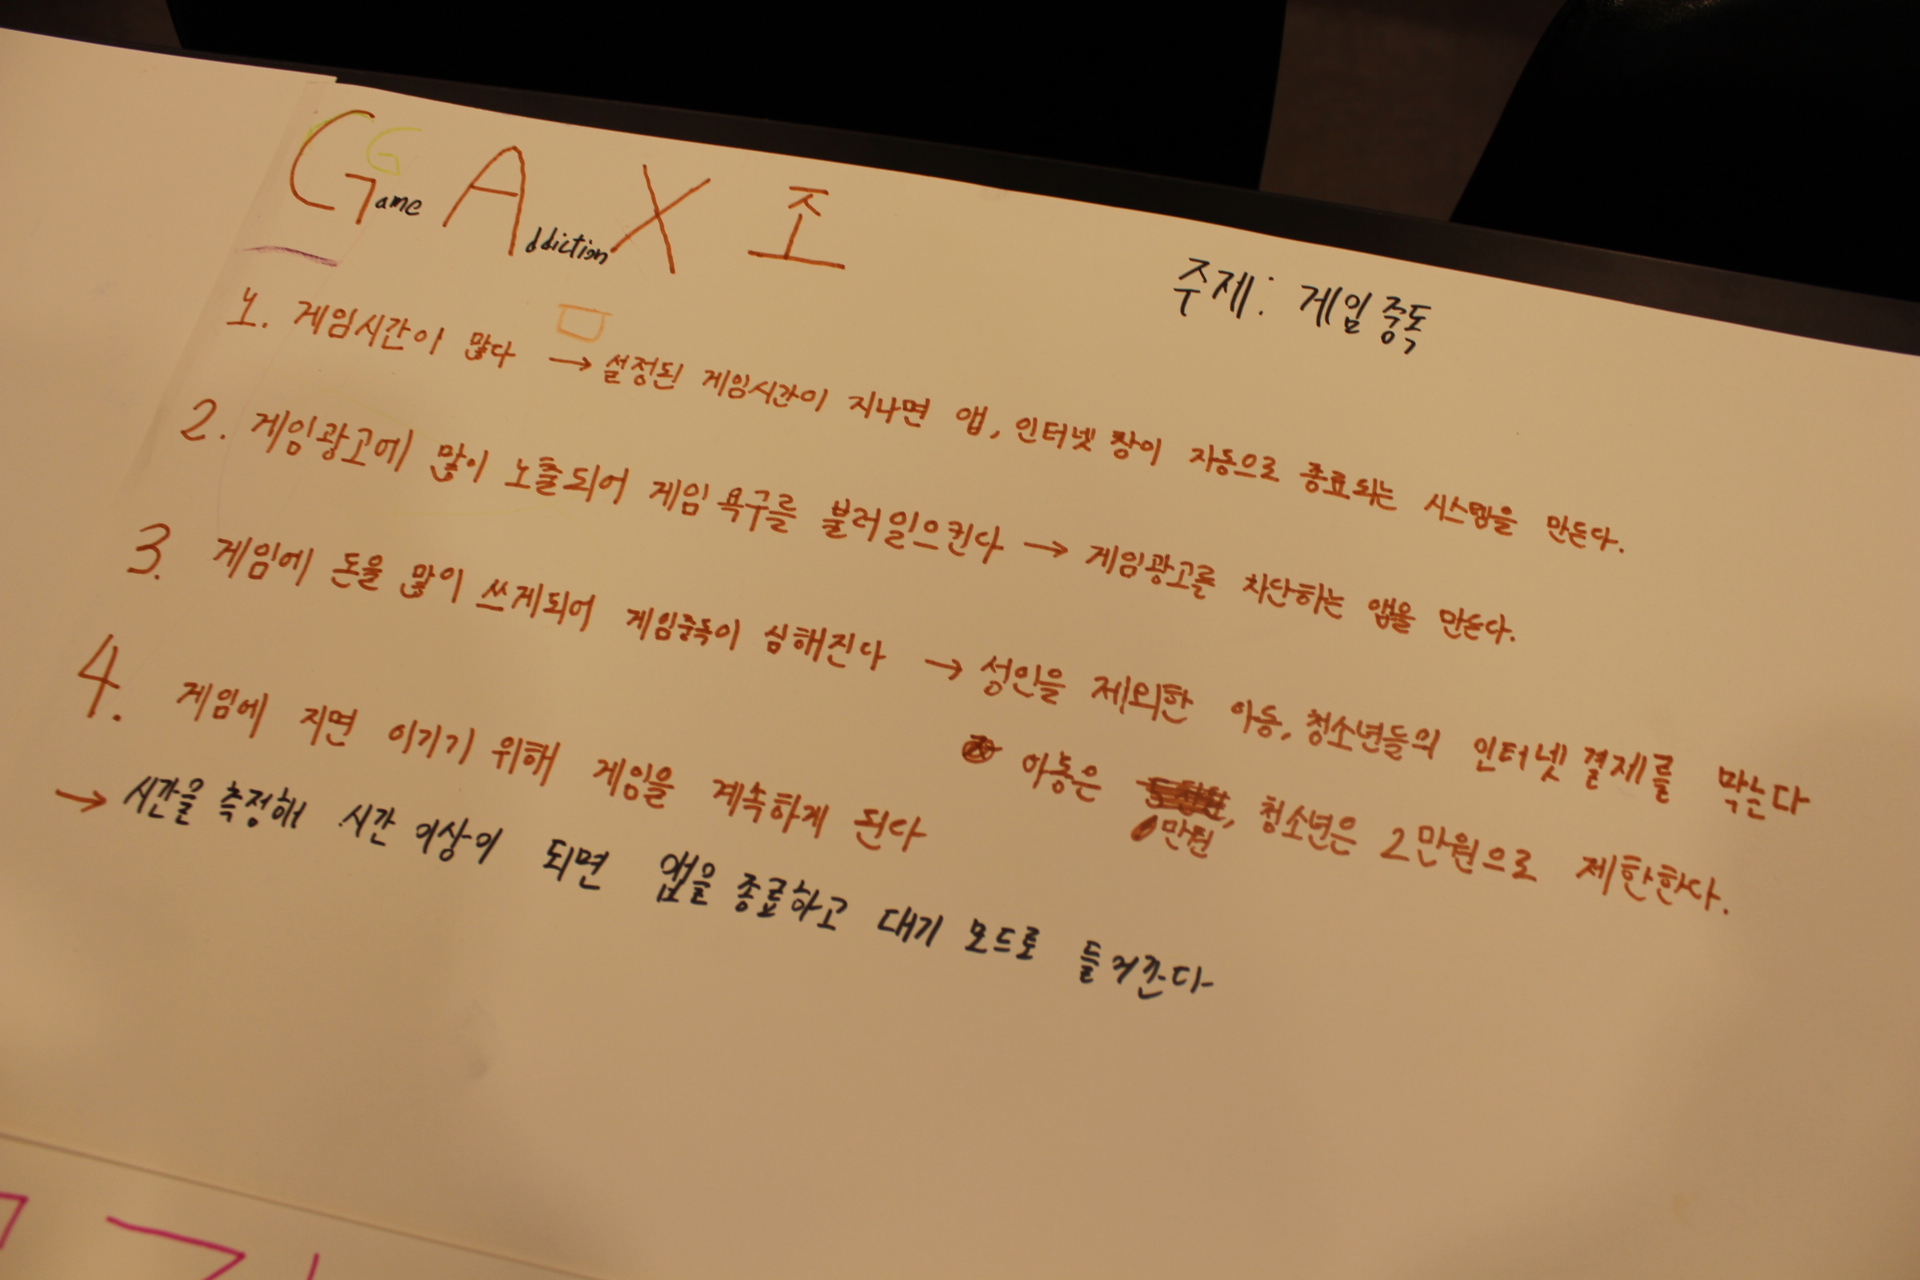 Game Addiction X 조
주제: 게임 중독
1. 게임시간이 많다 → 설정된 게임시간이 지나면 앱, 인터넷 창이 자동으로 종료되는 시스템을 만든다.
2. 게임광고에 많이 노출되어 게임 욕구를 불러일으킨다 → 게임광고를 차단하는 앱을 만든다.
3. 게임에 돈을 많이 쓰게되어 게임중독이 심해진다 → 성인을 제외한 아동, 청소년들의 인터넷 결제를 막는다
아동은 만원, 청소년은 2만원으로 제한한다.
4. 게임에 지면 이기기 위해 게임을 계속하게 된다
→ 시간을 측정해 시간 이상이 되면 앱을 종료하고 대기 모드로 들어간다